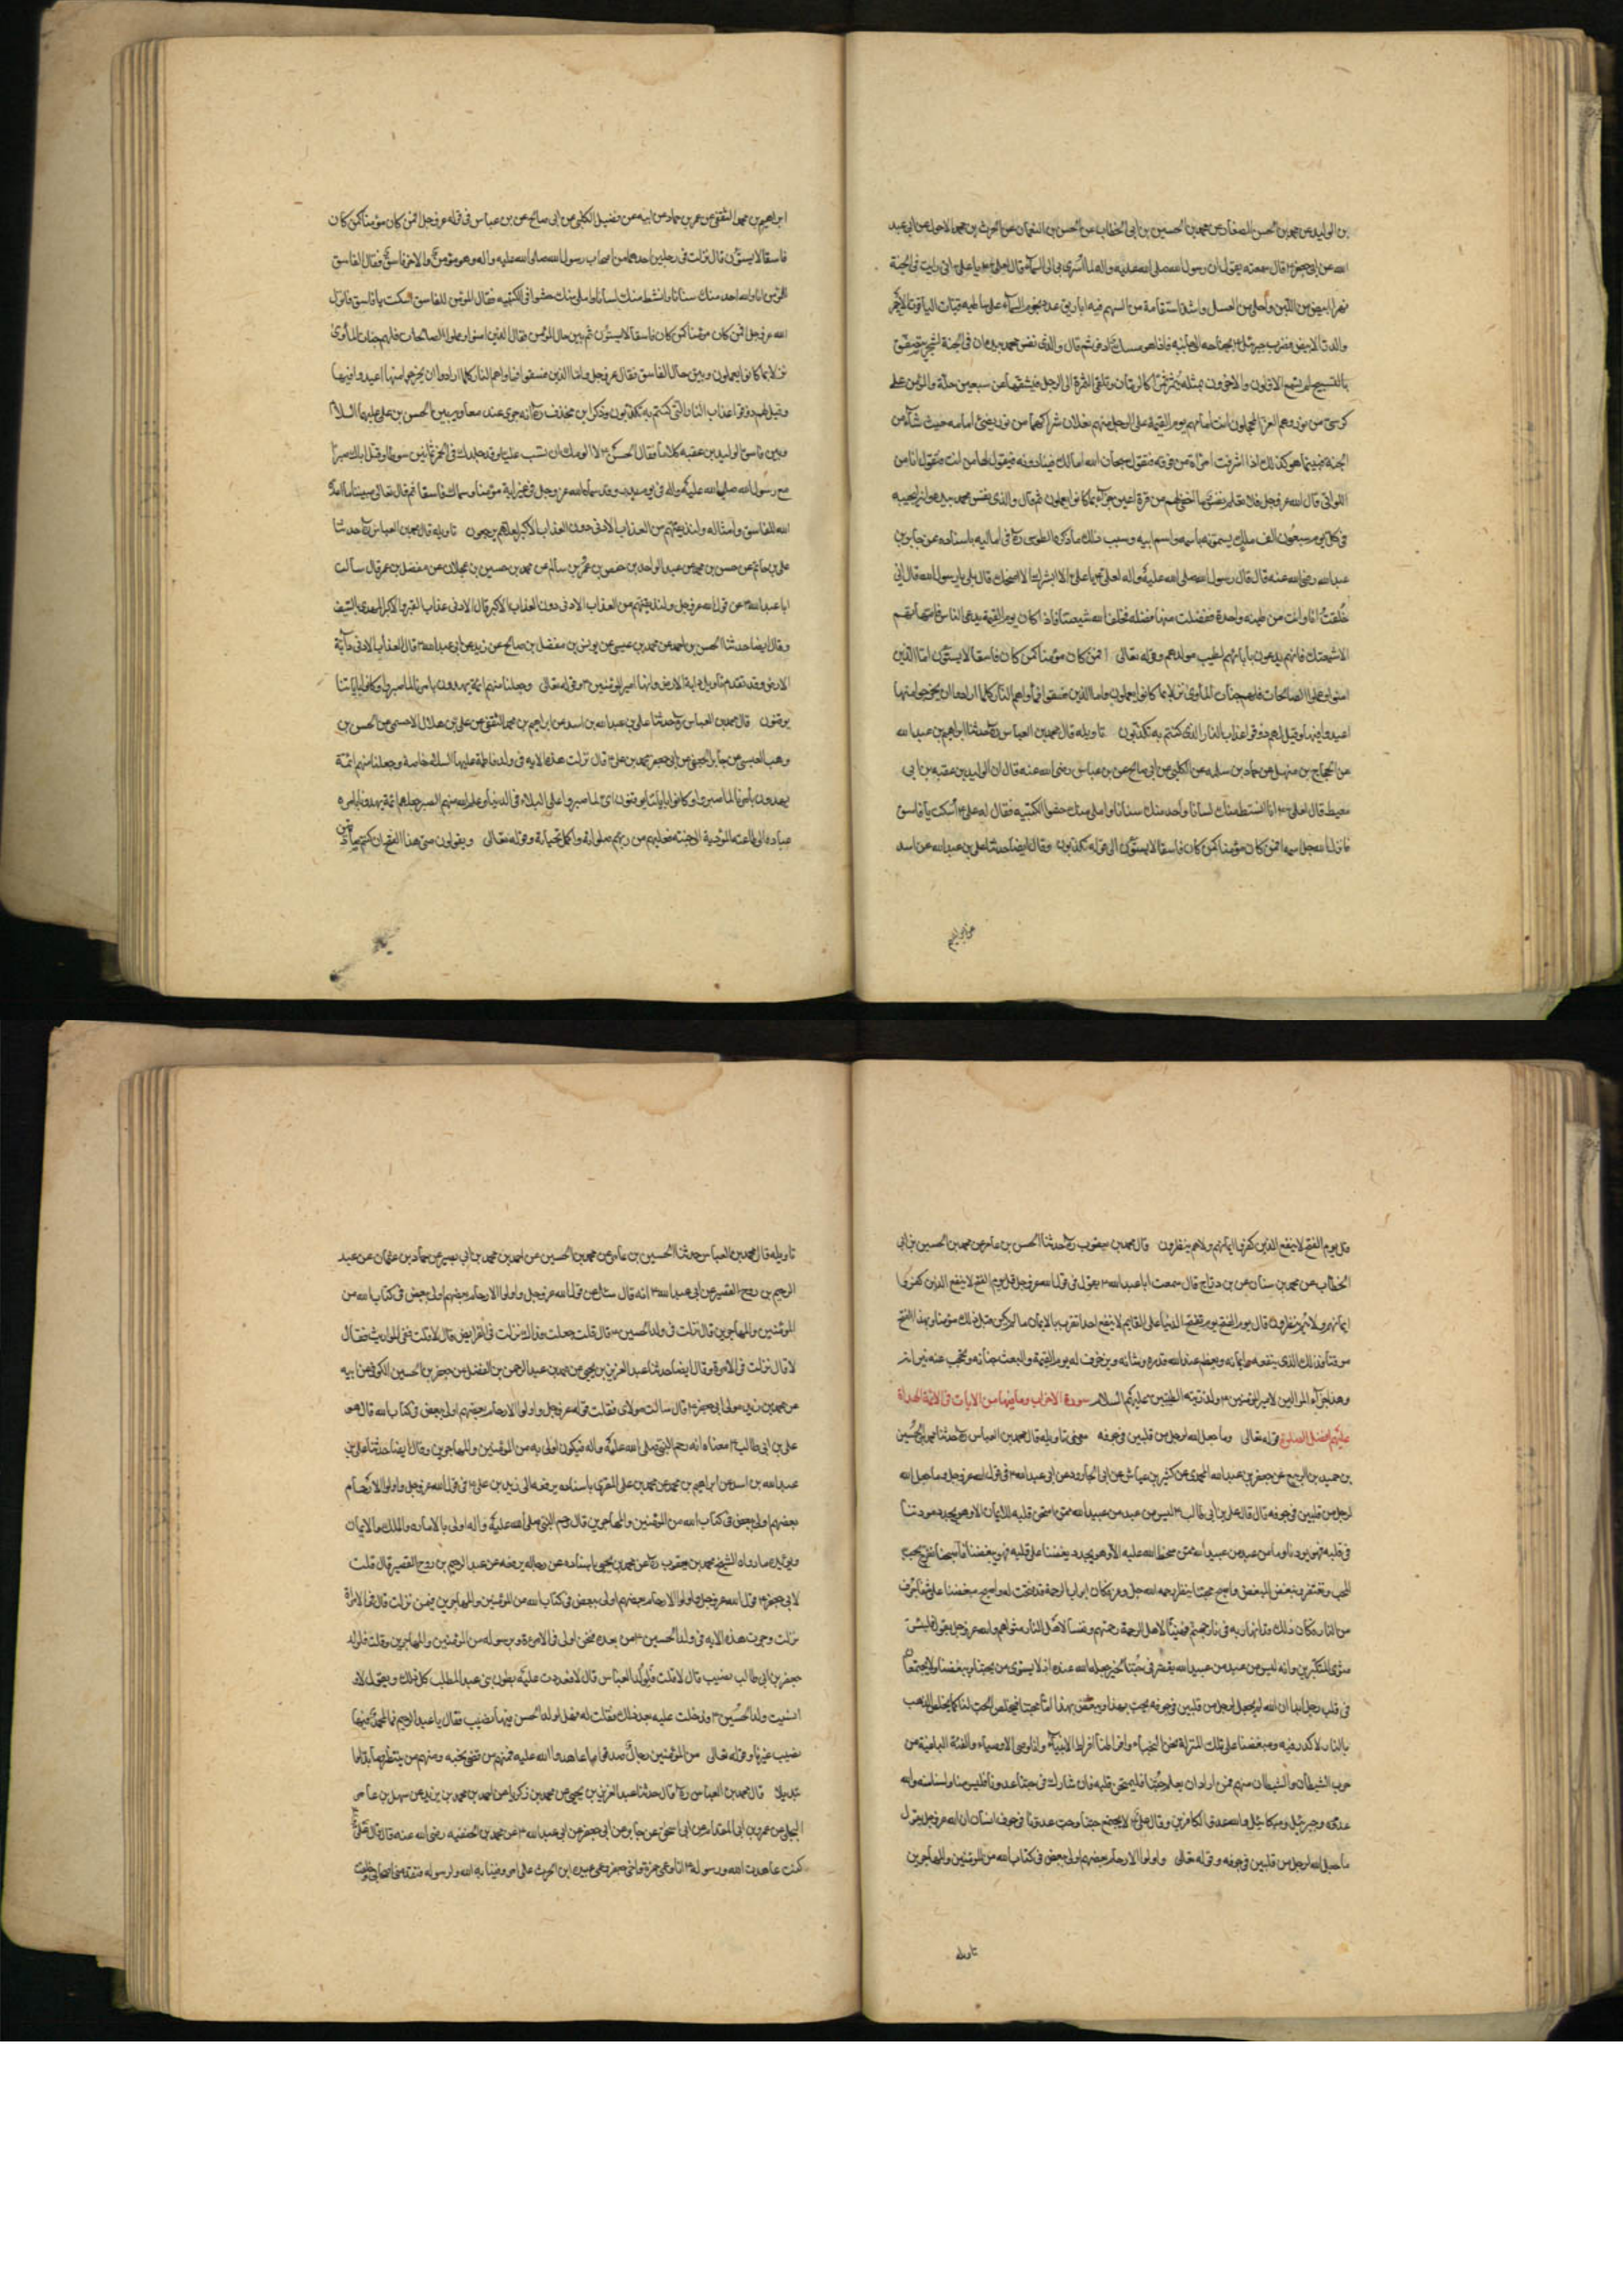 بن الوليد عن محمد بن الحسن الصفار عن محمد بن الحسين بن ابى الخطاب عن الحسن بن النعمان عن الحرث بن محمد الاحول عن ابى عبد
الله عن ابى جعفر ع قال سمعته يقول ان رسول الله صلى الله عليه واله لما اسرى بى الى السماء قال لعلى ع يا على انى رايت فى الجنة
نهرا ابيض من اللبن واحلى من العسل واشد استقامة من السهم فيه اباريق عدد نجوم السماء على شاطيه قباب الياقوت الاحمر
والدر الابيض فضرب جبرئيل بجناحه الى جانبه فاذا هو مسك اذفر ثم قال والذى نفس محمد بيده ان فى الجنة لشجر يتصفق
بالتسبيح لم يسمع الاولون والاخرون بمثله يثمر ثمرا كالرمان وتلقى الثمرة الى الرجل فيشقها عن سبعين حلة والمؤمن على
كرسى من نور وهم الغر المحجلون انت امامهم يوم القيمة على الرجل منهم نعلان شراكهما من نور يضئ امامه حيث شاء من
الجنة فبينما هو كذلك اذا اشرفت امراة من فوقه فتقول سبحان الله امالك فينا دولة فيقول لها من انت فتقول انا من
اللواتى قال الله عز وجل فلا تعلم نفس ما اخفى لهم من قرة اعين جزاء بما كانوا يعملون ثم قال والذى نفس محمد بيده انه ليجيئه
فى كل يوم سبعون الف ملك يسمونه باسمه واسم ابيه وسبب ذلك ما ذكره الطوسى ره فى اماليه باسناده عن جابر بن
عبد الله رضى الله عنه قال قال رسول الله صلى الله عليه واله لعلى ع يا على الا ابشرك الا امنحك قال بلى يا رسول الله قال انى
خلقت انا وانت من طينة واحدة ففضلت منها فضلة فخلق الله شيعتنا فاذا كان يوم القيمة يدعى الناس بامهاتهم
الا شيعتك فانهم يدعون بابائهم لطيب مولدهم وقوله تعالى افمن كان مؤمنا كمن كان فاسقا لا يستوون اما الذين
امنوا وعملوا الصالحات فلهم جنات الماوى نزلا بما كانوا يعملون واما الذين فسقوا فماواهم النار كلما ارادوا ان يخرجوا منها
اعيدوا فيها وقيل لهم ذوقوا عذاب النار الذى كنتم به تكذبون تاويله قال محمد بن العباس ره حدثنا ابراهيم بن عبد الله
عن الحجاج بن منهل عن حماد بن سلمه عن الكلبى عن ابى صالح عن بن عباس رضى الله عنه قال ان الوليد بن عقبه بن ابى
معيط قال لعلى ع انا ابسط منك لسانا واحد منك سنانا واملى منك حشوا للكتيبه فقال له على ع اسكت يا فاسق
فانزل الله جل اسمه افمن كان مؤمنا كمن كان فاسقا لا يستوون الى قوله تكذبون وقال ايضا حدثنا على بن عبد الله عن اسد
عن ابراهيم
ابراهيم بن محمد الثقفى عن عمر بن حماد عن ابيه عن فضيل الكلبى عن ابى صالح عن بن عباس فى قوله عز وجل افمن كان مؤمنا كمن كان
فاسقا لا يستوون قال نزلت فى رجلين احدهما من اصحاب رسول الله صلى الله عليه واله وهو مؤمن والاخر فاسق فقال الفاسق
للمؤمن انا والله احد منك سنانا وانشط منك لسانا واملى منك حشوا فى الكتيبه فقال المؤمن للفاسق اسكت يا فاسق فانزل
الله عز وجل افمن كان مؤمنا كمن كان فاسقا لا يستوون ثم بين حال المؤمن فقال الذين امنوا وعملوا الصالحات فلهم جنات الماوى
نزلا بما كانوا يعملون وبين حال الفاسق فقال عز وجل واما الذين فسقوا فماواهم النار كلما ارادوا ان يخرجوا منها اعيدوا فيها
وقيل لهم ذوقوا عذاب النار التى كنتم به تكذبون وذكر ابن مخنف ره انه جرى عند معاويه بين الحسن بن على عليهما السلام
وبين فاسق الوليد بن عقبه كلام فقال الحسن ع لا الومك ان تسب عليا وقد جلدك فى الخمر ثمانين سوطا وقتل اباك صبرا
مع رسول الله صلى الله عليه واله فى يوم بدر وقد سماه الله عز وجل فى غير اية مؤمنا وسماك فاسقا ثم قال تعالى مبينا ما اعد
الله للفاسق وامثاله ولنذيقنهم من العذاب الادنى دون العذاب الاكبر لعلهم يرجعون تاويله قال محمد بن العباس ره حدثنا
على بن حاتم عن حسن بن محمد عن عبد الواحد بن حفص بن عمر بن سالم عن محمد بن حسين بن عجلان عن مفضل بن عمر قال سالت
ابا عبد الله ع عن قول الله عز وجل ولنذيقنهم من العذاب الادنى دون العذاب الاكبر قال الادنى عذاب القبر والاكبر المهدى بالسيف
وقال ايضا حدثنا الحسن بن احمد عن محمد بن عيسى عن يونس بن مفضل بن صالح عن زيد عن ابى عبد الله ع قال العذاب الادنى دابة
الارض وقد تقدم تاويل دابة الارض وانها امير المؤمنين ع وقوله تعالى وجعلنا منهم ائمة يهدون بامرنا لما صبروا وكانوا باياتنا
يوقنون قال محمد بن العباس ره حدثنا على بن عبد الله بن اسد عن ابراهيم بن محمد الثقفى عن على بن هلال الاحمسى عن الحسن بن
وهب العبسى عن جابر الجعفى عن ابى جعفر محمد بن على ع قال نزلت هذه الايه فى ولد فاطمة عليها السلم خاصة وجعلنا منهم ائمة
يهدون بامرنا لما صبروا وكانوا باياتنا يوقنون اى لما صبروا على البلاء فى الدنيا وعلم الله منهم الصبر جعلهم ائمة يهدون بامره
عباده الى طاعته المؤدية الى جنته فعليهم من ربهم صلواته واكمل تحياته وقوله تعالى ويقولون متى هذا الفتح ان كنتم صادقين
قل يوم الفتح لا ينفع الذين كفروا ايمانهم ولا هم ينظرون قال محمد بن يعقوب ره حدثنا الحسن بن عامر عن محمد بن الحسين بن ابى
الخطاب عن محمد بن سنان عن بن دراج قال سمعت ابا عبد الله ع يقول فى قول الله عز وجل قل يوم الفتح لا ينفع الذين كفروا
ايمانهم ولا هم ينظرون قال يوم الفتح يوم تفتح الدنيا على القايم لا ينفع احدا تقرب بالايمان ما لم يكن قبل ذلك مؤمنا وبهذا الفتح
موقنا فذلك الذى ينفعه ايمانه ويعظم عند الله قدره وشانه وتزخرف له يوم القيمة والبعث جنانه وتحجب عنه نيرانه
وهذا جزاء الموالين لامير المؤمنين ع ولذريته الطيبين عليهم السلام سورة الاحزاب وما فيها من الايات فى الائمة الهداة
عليهم افضل الصلوة قوله تعالى وما جعل الله لرجل من قلبين فى جوفه معنى تاويله قال محمد بن العباس ره حدثنا محمد بن الحسين
بن حميد بن الربيع عن جعفر بن عبد الله المحمدى عن كثير بن عياش عن ابى الجارود عن ابى عبد الله ع فى قول الله عز وجل ما جعل الله
لرجل من قلبين فى جوفه قال قال على بن ابى طالب ع ليس من عبد من عبيد الله ممن امتحن قلبه للايمان الا وهو يجد مودتنا
فى قلبه فهو يودنا وما من عبد من عبيد الله ممن سخط الله عليه الا وهو يجد بغضنا على قلبه فهو يبغضنا فاصبحنا نفرح بحب
المحب ونغتفر له ونبغض المبغض واصبح محبنا ينتظر رحمه الله جل وعز فكان ابواب الرحمة قد فتحت له واصبح مبغضنا على شفا جرف
من النار فكان ذلك وقد انهار به فى نار جهنم فهنيئا لاهل الرحمة رحمتهم وتعسا لاهل النار مثواهم والله عز وجل يقول فلبئس
مثوى المتكبرين وانه ليس من عبد من عبيد الله يقصر فى حبنا لخير جعله الله عنده اذ لا يستوى من يحبنا ويبغضنا ولا يجتمعا
فى قلب رجل ابدا ان الله لم يجعل لرجل من قلبين فى جوفه يحب بهذا ويبغض بهذا اما محبنا فيخلص الحب لنا كما يخلص الذهب
بالنار لا كدر فيه ومبغضنا على تلك المنزلة نحن النجباء وافراطنا افراط الانبياء وانا وصى الاوصياء والفئة الباغية من
حزب الشيطان والشيطان منهم فمن اراد ان يعلم حبنا فليمتحن قلبه فان شارك فى حبنا عدونا فليس منا ولسنا منه والله
عدوه وجبرئيل وميكائيل والله عدو الكافرين وقال على ع لا يجتمع حبنا وحب عدونا فى جوف انسان ان الله عز وجل يقول
ما جعل الله لرجل من قلبين فى جوفه وقوله تعالى واولوا الارحام بعضهم اولى ببعض فى كتاب الله من المؤمنين والمهاجرين
تاويله
تاويله قال محمد بن العباس حدثنا الحسين بن عامر عن محمد بن الحسين عن احمد بن محمد بن ابى نصير عن حماد بن عثمان عن عبد
الرحيم بن روح القصير عن ابى عبد الله ع انه قال سئل عن قول الله عز وجل واولوا الارحام بعضهم اولى ببعض فى كتاب الله من
المؤمنين والمهاجرين قال نزلت فى ولد الحسين ع قال قلت جعلت فداك نزلت فى الفرايض قال لا قلت ففى المواريث فقال
لا قال نزلت فى الامرة وقال ايضا حدثنا عبد العزيز بن يحيى عن محمد بن عبد الرحمن بن الفضل عن جعفر بن الحسين الكوفى عن ابيه
عن محمد بن زيد مولى ابى جعفر ع قال سالت مولاى فقلت قوله عز وجل واولوا الارحام بعضهم اولى ببعض فى كتاب الله قال هو
على بن ابى طالب ع معناه انه رحم النبى صلى الله عليه واله فيكون اولى به من المؤمنين والمهاجرين وقال ايضا حدثنا على بن
عبد الله بن اسد عن ابراهيم بن محمد عن محمد بن على المقرى باسناده يرفعه الى زيد بن على ع فى قول الله عز وجل واولوا الارحام
بعضهم اولى ببعض فى كتاب الله من المؤمنين والمهاجرين قال رحم النبى صلى الله عليه واله اولى بالامارة والملك والايمان
ويؤيده ما رواه الشيخ محمد بن يعقوب ره عن محمد بن يحيى باسناده عن رجاله يرفعه عن عبد الرحيم بن روح القصير قال قلت
لابى جعفر ع قول الله عز وجل واولوا الارحام بعضهم اولى ببعض فى كتاب الله من المؤمنين والمهاجرين فيمن نزلت قال فى الامرة
نزلت وجرت هذه الايه فى ولد الحسين ع من بعده فنحن اولى فى الامرة وبرسوله من المؤمنين والمهاجرين وقلت فلولد
جعفر بن ابى طالب نصيب قال لا قلت فلولد العباس قال لا فعددت عليه بطون بنى عبد المطلب كل ذلك ويقول لا و
انسيت ولد الحسن ع ودخلت عليه بعد ذلك فقلت له فهل لولد الحسن فيها نصيب فقال يا عبد الرحيم ما لمحمدى فيها
نصيب غيرنا وقوله تعالى من المؤمنين رجال صدقوا ما عاهدوا الله عليه فمنهم من قضى نحبه ومنهم من ينتظر وما بدلوا
تبديلا قال محمد بن العباس ره قال حدثنا عبد العزيز بن يحيى عن محمد بن زكريا عن احمد بن محمد بن يزيد عن سهل بن عامر
البجلى عن عمرو بن ابى المقدام عن ابى اسحق عن جابر عن ابى جعفر عن ابى عبد الله ع عن محمد بن الحنفيه رضى الله عنه قال قال على ع
كنت عاهدت الله ورسوله ع انا وعمى حمزة واخى جعفر وعمى عبيده ابن الحرث على امر وفينا به الله ولرسوله فتقدمنى اصحابى وخلفت